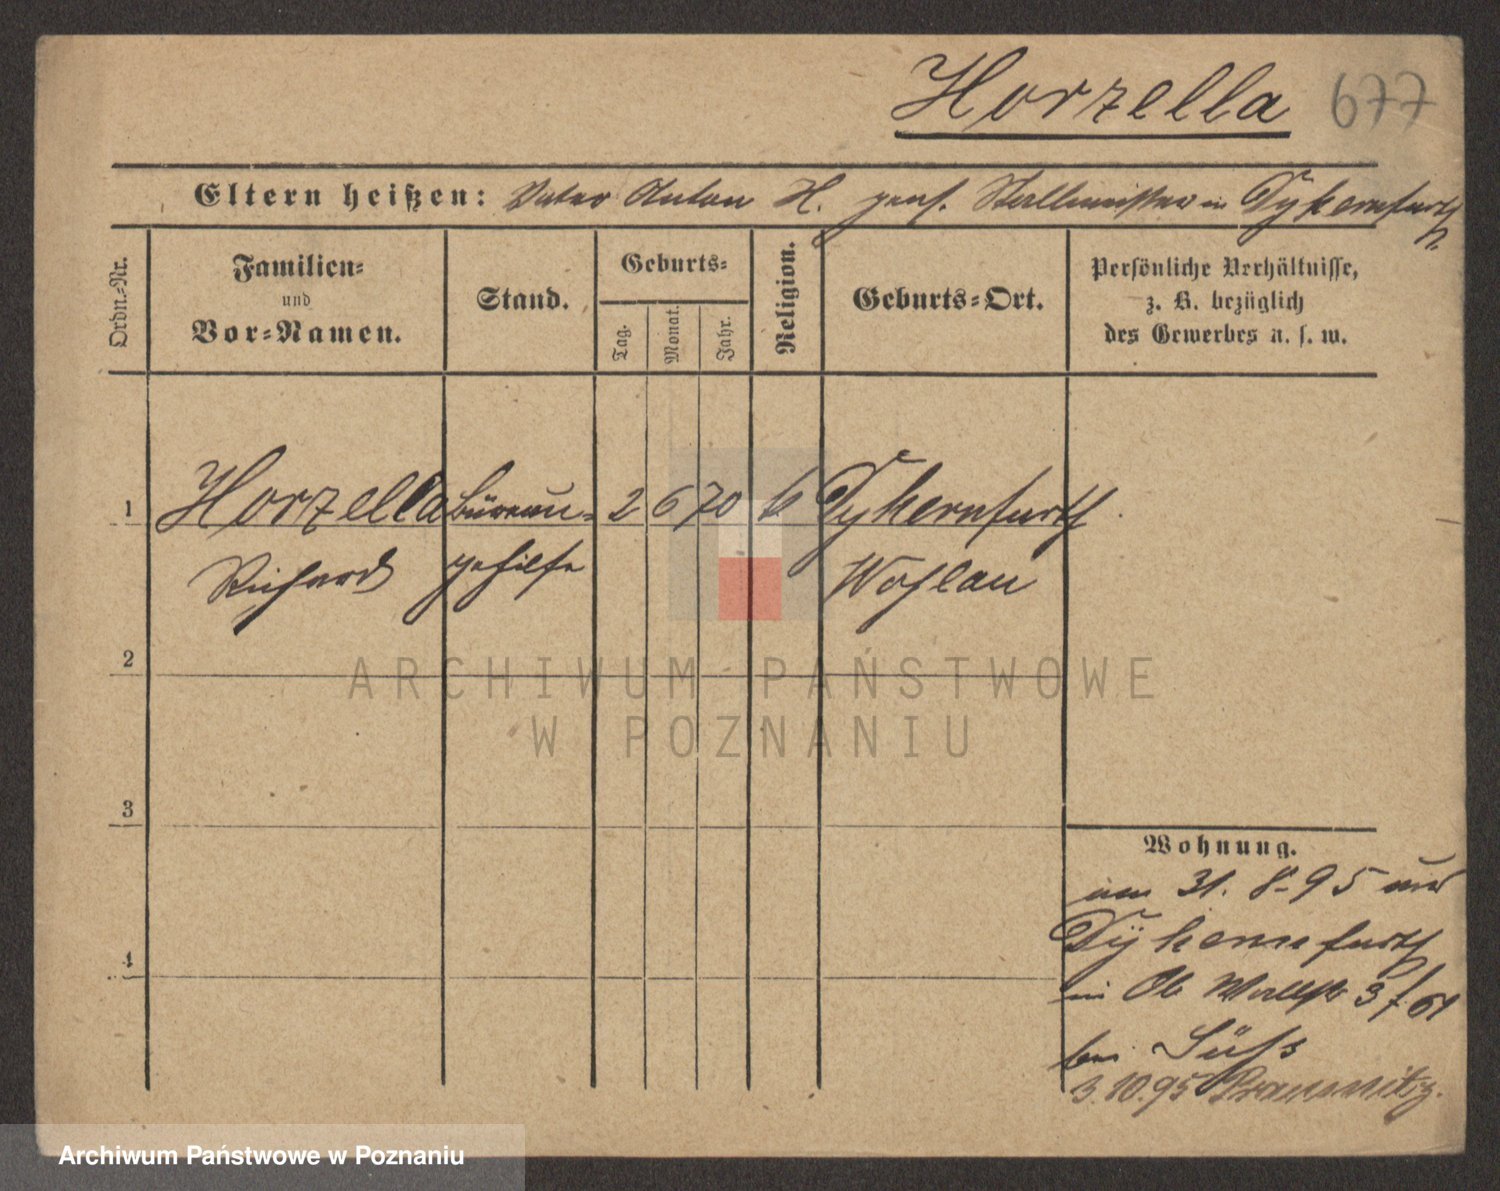 Horzella 677
Eltern heißen: Vater Anton H. pens. Stallmeister in Dyhernfurth
Ordn.-Nr.
Familien-
und
Vor-Namen.
Stand.
Geburts-
Tag.
Monat.
Jahr.
Religion.
Geburts-Ort.
Persönliche Verhältnisse,
z. B. bezüglich
des Gewerbes u. s. w.
1 Horzella Büreau- 2 6 70 k Dyhernfurth
Richard gehilfe Wohlau
2
3
4
Wohnung.
am 31. 8. 95 aus
Dyhernfurth
in Ob Wallstr 3
bei Süß
3.10.95 Prausnitz.
ARCHIWUM PAŃSTWOWE
W POZNANIU
Archiwum Państwowe w Poznaniu